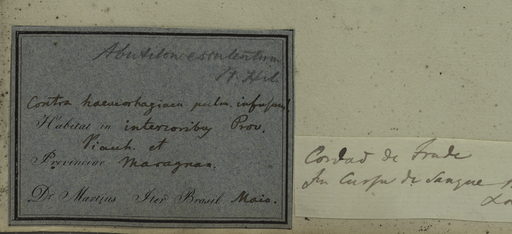 Abutilon esculentum
St. Hil.
Contra haemorhagiam pulm. infusum
Habitat in interioribus Prov.
Piauh. et
Provinciae Maragnan.
Dr Martius Iter Brasil Maio.
de Frade
de Sangue